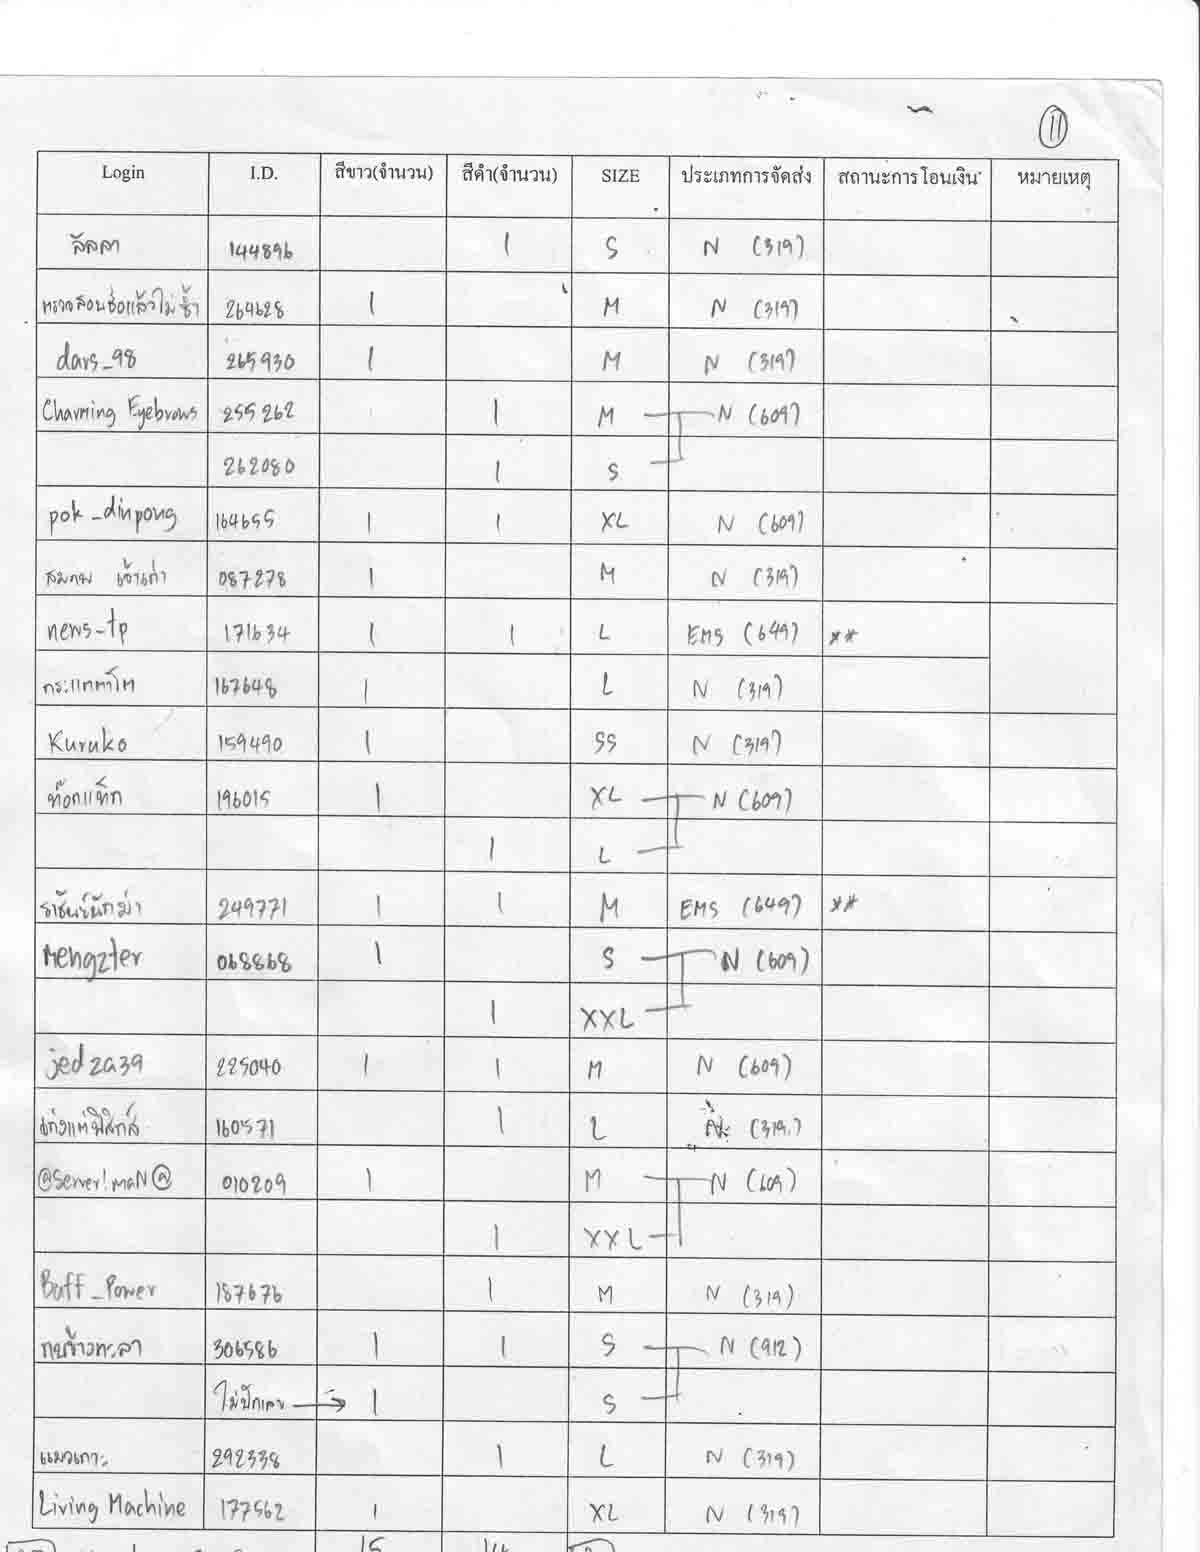 11
Login I.D. สีขาว(จำนวน) สีดำ(จำนวน) SIZE ประเภทการจัดส่ง สถานะการโอนเงิน หมายเหตุ
ลัลลา 144896 1 S N (319)
ตรวจสอบชื่อแล้วไม่ซ้ำ 264628 1 M N (319)
dars_98 265930 1 M N (319)
Charming Eyebrows 255262 1 M N (609)
262080 1 S
pok_dinpong 164655 1 1 XL N (609)
สมภพ เจ้าเก่า 087278 1 M N (319)
news-tp 171634 1 1 L EMS (649) **
กระแตตาโต 167648 1 L N (319)
Kuruko 159490 1 SS N (319)
ท๊อกแท็ก 196015 1 XL N (609)
1 L
249771 1 1 M EMS (649) **
Mengzter 068868 1 S N (609)
1 XXL
jedza39 225040 1 1 M N (609)
เก่งแต่ฟิสิกส์ 160571 1 L (319)
@Server!maN@ 010209 1 M N (609)
1 XXL
Buff_Power 187676 1 M N (319)
กบข้างทะลา 306586 1 1 S N (912)
ไม่ปักเลข → 1 S
แมวเกาะ 292338 1 L N (319)
Living Machine 177562 1 XL N (319)
15 14